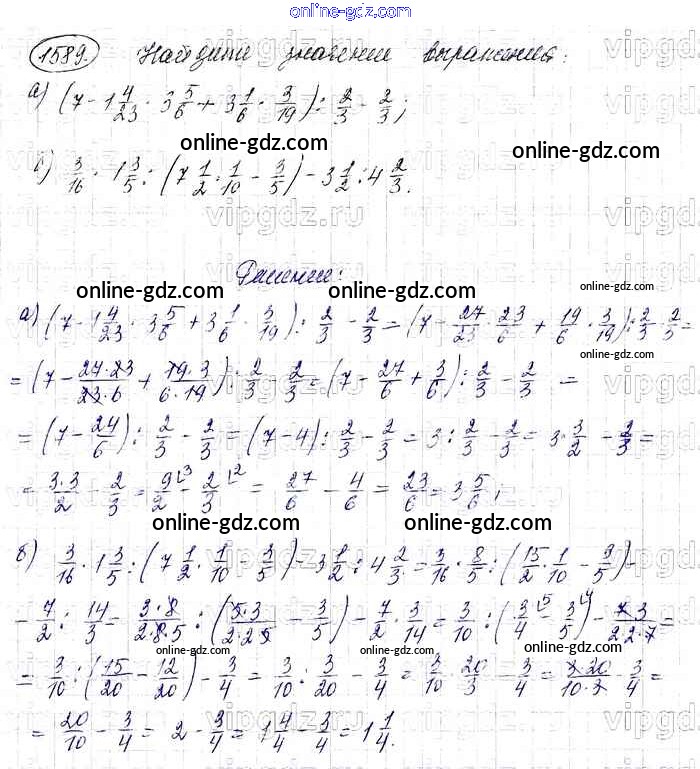 online-gdz.com
1589. Найдите значение выражения:
а) (7 - 1 4/23 · 3 5/6 + 3 1/6 · 3/19) : 2/3 - 2/3;
online-gdz.com online-gdz.com
б) 3/16 · 1 3/5 : (7 1/2 · 1/10 - 3/5) - 3 1/2 : 4 2/3.
Решение:
online-gdz.com online-gdz.com online-gdz.com
а) (7 - 1 4/23 · 3 5/6 + 3 1/6 · 3/19) : 2/3 - 2/3 = (7 - 27/23 · 23/6 + 19/6 · 3/19) : 2/3 - 2/3 =
= (7 - 27·23/23·6 + 19·3/6·19) : 2/3 - 2/3 = (7 - 27/6 + 3/6) : 2/3 - 2/3 =
= (7 - 24/6) : 2/3 - 2/3 = (7 - 4) : 2/3 - 2/3 = 3 : 2/3 - 2/3 = 3 · 3/2 - 2/3 =
= 3·3/2 - 2/3 = 9/2 - 2/3 = 27/6 - 4/6 = 23/6 = 3 5/6;
online-gdz.com online-gdz.com
б) 3/16 · 1 3/5 : (7 1/2 · 1/10 - 3/5) - 3 1/2 : 4 2/3 = 3/16 · 8/5 : (15/2 · 1/10 - 3/5) -
- 7/2 : 14/3 = 3·8/2·8·5 : (5·3/2·2·5 - 3/5) - 7/2 · 3/14 = 3/10 : (3/4 - 3/5) - 7·3/2·2·7 =
online-gdz.com online-gdz.com online-gdz.com
= 3/10 : (15/20 - 12/20) - 3/4 = 3/10 : 3/20 - 3/4 = 3/10 · 20/3 - 3/4 = 3·20/10·3 - 3/4 =
= 20/10 - 3/4 = 2 - 3/4 = 1 4/4 - 3/4 = 1 1/4.
online-gdz.com online-gdz.com